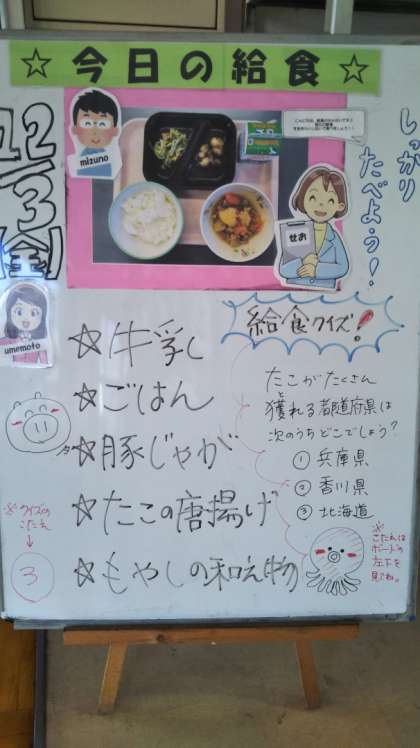 ☆今日の給食☆
12/3(金)
しっかり
たべよう!
mizuno
せお
umemoto
☆牛乳
☆ごはん
☆豚じゃが
☆たこの唐揚げ
☆もやしの和え物
給食クイズ!
たこがたくさん
獲れる都道府県は
次のうちどこでしょう?
① 兵庫県
② 香川県
③ 北海道
※こたえは
ボードの
左下を
見てね。
※クイズの
こたえ
↓
3